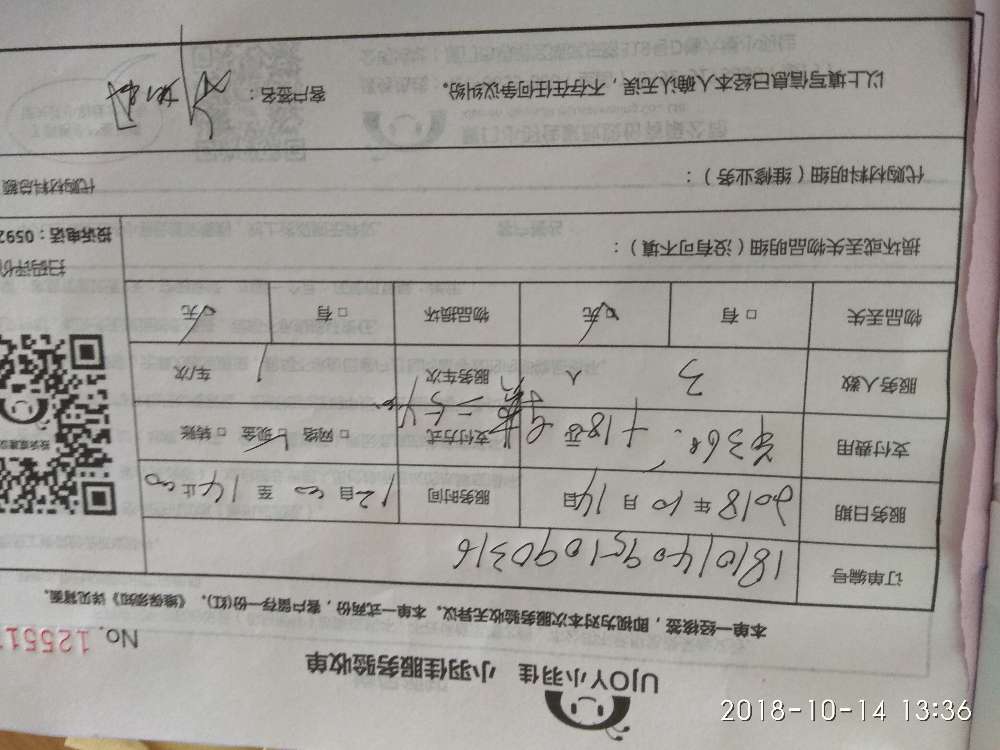 UJOY小羽佳 小羽佳服务验收单
No. 12551
本单一经核签，即视为对本次服务验收无异议。本单一式两份，客户留存一份(红)。《维保须知》详见背面。
订单编号 1810140951090316
服务日期 2018年10月14日 服务时间 12自00至14止00
支付费用 360 +180 =540 支付方式 □网络 ☑现金 □转账
服务人数 3 人 服务车次 1 车/次
物品丢失 □有 ☑无 物品损坏 □有 ☑无
损坏或丢失物品明细（没有可不填）：
扫码评价
投诉电话：0592
代购材料明细（维修业务）： 代购材料总额
以上填写信息已经本人确认无误，不存在任何争议纠纷。 客户签名：
2018-10-14 13:36